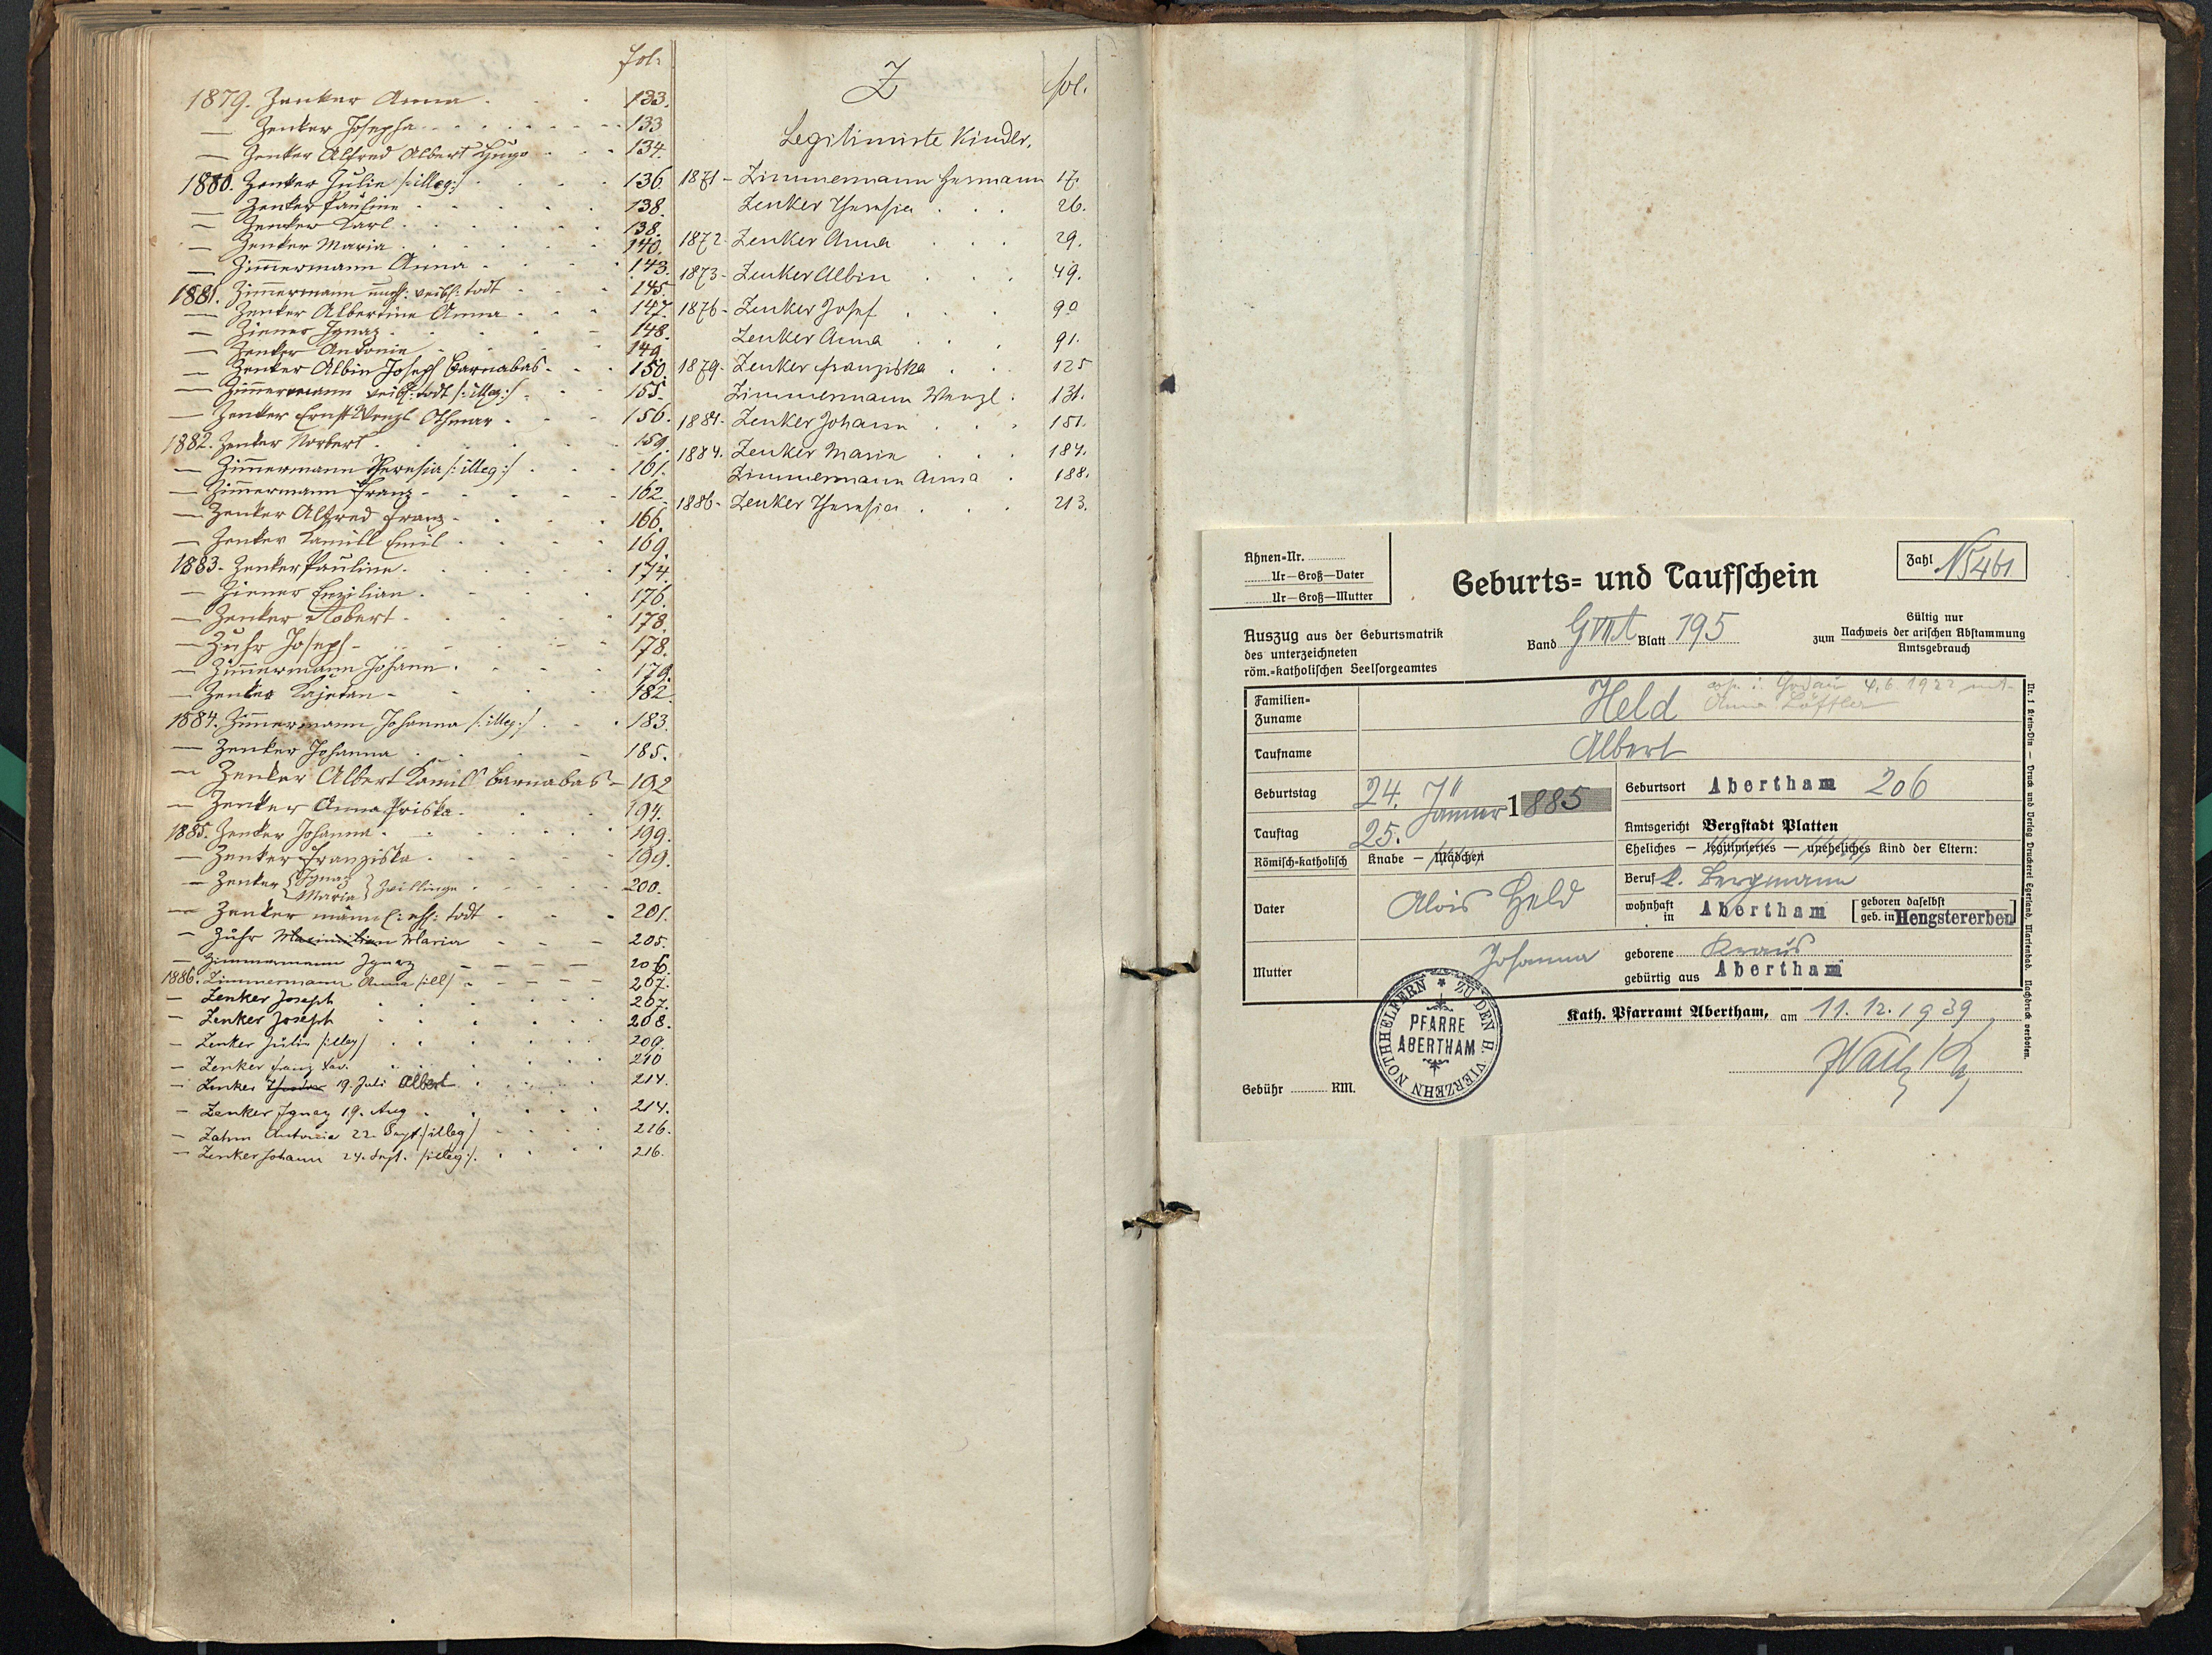 fol.
1879. Zenker Anna 133.
— Zenker Josepha 133
— Zenker Alfred Albert Hugo 134.
1880. Zenker Julie /:illeg:/ 136.
— Zenker Pauline 138.
— Zenker Karl 138.
— Zenker Maria 140.
— Zim̄ermann Anna 143.
1881. Zim̄ermann todt 145.
— Zenker Albertine Anna 147.
— Ziener Ignaz 148.
— Zenker Antonie 149.
— Zenker Albin Joseph Barnabas 150.
— Zim̄ermann todt /:illeg:/ 155.
— Zenker Ernst Wenzl Othmar 156.
1882. Zenker Norbert 159.
— Zim̄ermann Theresia /:illeg:/ 161.
— Zim̄ermann Franz 162.
— Zenker Alfred Franz 166.
— Zenker Kamill Emil 169.
1883. Zenker Pauline 174.
— Ziener 176.
— Zenker Robert 178.
— Zuhr Joseph 178.
— Zim̄ermann Johann 179.
— Zenker Kajetan 182
1884. Zim̄ermann Johanna /:illeg:/ 183.
— Zenker Johanna 185.
— Zenker Albert Kamill Barnabas 192
— Zenker Anna Priska 194.
1885. Zenker Johanna 199.
— Zenker Franziska 199.
— Zenker { Ignaz Maria } Zwillinge 200.
— Zenker männl: todt 201.
— Zuhr Maximilian Maria 205.
— Zimmermann Ignaz 206.
1886. Zimmermann Anna /ill/ 207.
— Zenker Joseph 207.
— Zenker Joseph 208.
— Zenker Julie /:illeg/ 209.
— Zenker Franz Xav. 210
— Zenker 19. Juli Albert 214.
— Zenker Ignaz 19. Aug 214.
— Zahn Antonie 22. Sept. /illeg/ 216.
— Zenker Johann 24. Sept. /:illeg:/ 216.
Z fol.
Legitimirte Kinder.
1871 - Zimmermann Hermann 17.
Zenker Theresia 26.
1872 - Zenker Anna 29.
1873 - Zenker Albin 49.
1876 - Zenker Josef 90
Zenker Anna 91.
1879 - Zenker Franziska 125
Zimmermann Wenzl 131.
1881 - Zenker Johann 151.
1884. Zenker Marie 184.
Zimmermann Anna 188.
1886 - Zenker Theresia 213.
Ahnen=Nr.
Ur—Groß—Vater
Ur—Groß—Mutter
Geburts= und Taufschein
Zahl N5461
Auszug aus der Geburtsmatrik
des unterzeichneten
röm.=katholischen Seelsorgeamtes
Band Blatt 195
Gültig nur
zum Nachweis der arischen Abstammung
Amtsgebrauch
Familien=
Zuname
Held
4.6.1922 mit
Anna Löffler
Taufname Albert
Geburtstag 24. Jänner 1885
Geburtsort Abertham 206
Tauftag 25.
Amtsgericht Bergstadt Platten
Römisch=katholisch Knabe — Mädchen
Eheliches — legitimiertes — uneheliches Kind der Eltern:
Vater Alois Held
Beruf k. Bergmann
wohnhaft in Abertham [geboren daselbst
geb. in Hengstererben]
Mutter Johanna
geborene Kraus
gebürtig aus Abertham
Nr. 1 Klein=Din — Druck und Verlag Druckerei Egerland, Marienbad. Nachdruck verboten.
Kath. Pfarramt Abertham, am 11.12.1939
ZU DEN H. VIERZEHN NOTHHELFERN
PFARRE
ABERTHAM
Gebühr RM.